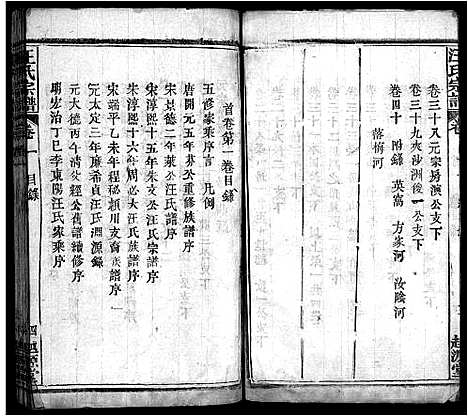 汪氏宗譜
卷三十八元宗房演公支下
卷三十九夾沙洲俊一公支下
卷四十 附錄 英窩 方家河 汝陰河
落梢河
越源堂
首卷第一卷目錄
五修家乘序言 凡例
唐開元五年汪氏修族譜序
宋景德二年葉公汪氏譜序
宋淳熙十五年朱文公汪氏宗譜序
宋淳熙十六年周必大汪氏族譜序
宋端平乙未年程秘潁川支裔族譜序
元太定三年廉希貞汪氏淵源錄
元大德丙午清公舊譜續修序
明宏治丁巳李東陽汪氏家乘序
汪氏宗譜
卷一 目錄
四 越源堂